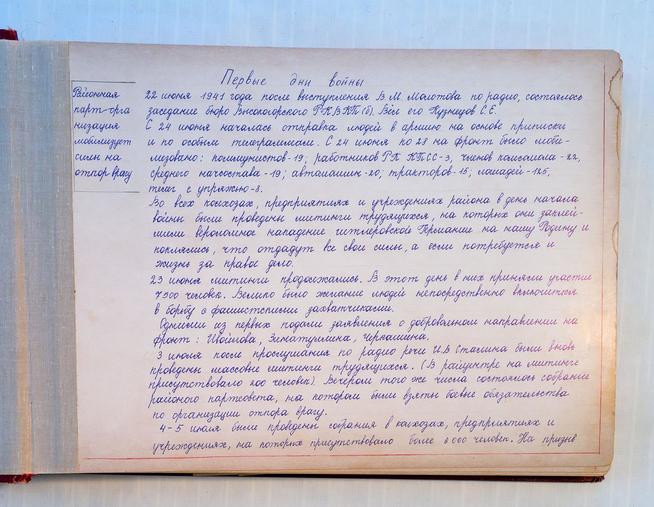 Первые дни войны
Районная
парт-орга
низация
мобилизует
силы на
отпор врагу
22 июня 1941 года после выступления В.М. Молотова по радио, состоялось
заседание бюро Высокогорского РК ВКП(б). Вёл его Кузнецов С.Е.
С 24 июня началась отправка людей в армию на основе приписки
и по особым телеграммам. С 24 июня по 28 на фронт было моби-
лизовано: коммунистов-19; работников РК КПСС-3, членов комсомола-22,
среднего начсостава-19; автомашин-20; тракторов-15; лошадей-125,
телег с упряжью-8.
Во всех колхозах, предприятиях и учреждениях района в день начала
войны были проведены митинги трудящихся, на которых они заклей-
мили вероломное нападение гитлеровской Германии на нашу Родину и
поклялись, что отдадут все свои силы, а если потребуется и
жизнь за правое дело.
23 июня митинги продолжались. В этот день в них приняли участие
7900 человек. Велико было желание людей непосредственно включиться
в борьбу с фашистскими захватчиками.
Одними из первых подали заявления о добровольном направлении на
фронт: Зинатуллина,
3 июля после прослушания по радио речи И.В Сталина были вновь
проведены массовые митинги трудящихся. (В райцентре на митинге
присутствовало 200 человек). Вечером того же числа состоялось собрание
районного партсовета, на котором были взяты боевые обязательства
по организации отпора врагу.
4-5 июля были проведены собрания в колхозах, предприятиях и
учреждениях, на которых присутствовало более 000 человек. На призыв